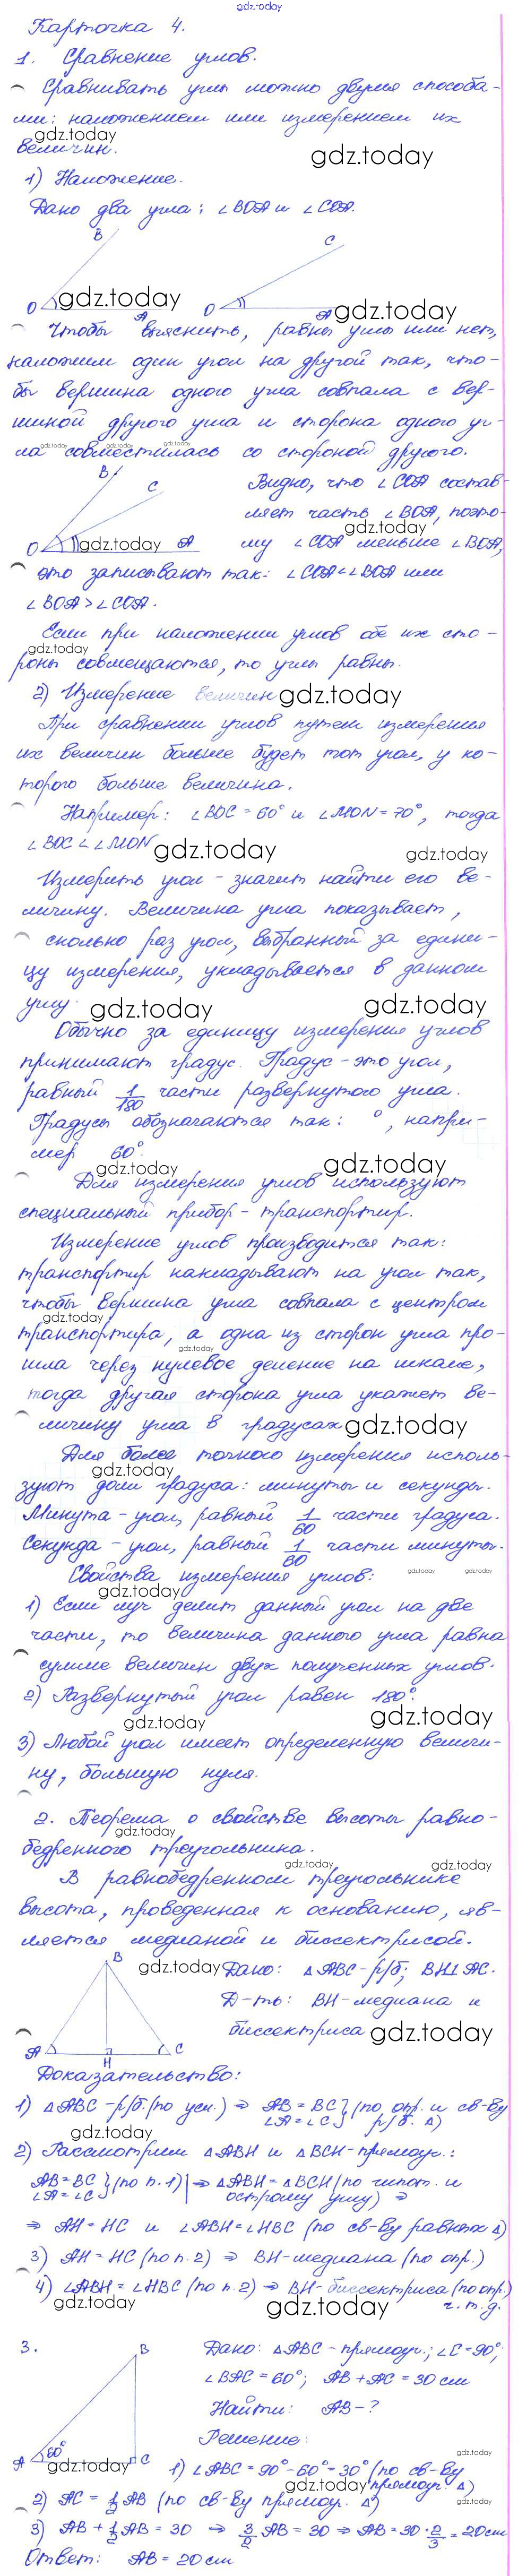 gdz.today
Карточка 4.
1. Сравнение углов.
Сравнивать углы можно двумя способа-
ми: наложением или измерением их
gdz.today
величин.
gdz.today
1) Наложение.
Дано два угла: ∠BOA и ∠COA.
B
C
O gdz.today A O A gdz.today
Чтобы выяснить, равны углы или нет,
наложим один угол на другой так, что-
бы вершина одного угла совпала с вер-
шиной другого угла и сторона одного уг-
gdz.today gdz.today gdz.today
ла совместилась со стороной другого.
B
C
Видно, что ∠COA состав-
ляет часть ∠BOA, поэто-
gdz.today
O gdz.today A му ∠COA меньше ∠BOA,
это записывают так: ∠COA<∠BOA или
∠BOA>∠COA.
Если при наложении углов обе их сто-
gdz.today
роны совмещаются, то углы равны.
2) Измерение величин gdz.today
При сравнении углов путем измерения
их величин больше будет тот угол, у ко-
торого больше величина.
Например: ∠BOC = 60° и ∠MON = 70°, тогда
∠BOC < ∠MON gdz.today gdz.today
Измерить угол - значит найти его ве-
личину. Величина угла показывает,
сколько раз угол, выбранный за едини-
цу измерения, укладывается в данном
углу. gdz.today gdz.today
Обычно за единицу измерения углов
принимают градус. Градус - это угол,
равный 1/180 части развернутого угла.
Градусы обозначаются так: °, напри-
мер 60°.
gdz.today gdz.today
Для измерения углов используют
специальный прибор - транспортир.
Измерение углов производится так:
транспортир накладывают на угол так,
чтобы вершина угла совпала с центром
gdz.today
транспортира, а одна из сторон угла про-
gdz.today
шла через нулевое деление на шкале,
тогда другая сторона угла укажет ве-
личину угла в градусах gdz.today
Для более точного измерения исполь-
gdz.today
зуют доли градуса: минуты и секунды.
Минута - угол, равный 1/60 части градуса.
Секунда - угол, равный 1/60 части минуты.
Свойства измерения углов: gdz.today gdz.today
gdz.today
1) Если луч делит данный угол на две
части, то величина данного угла равна
сумме величин двух полученных углов.
2) Развернутый угол равен 180°.
gdz.today gdz.today
3) Любой угол имеет определенную величи-
ну, большую нуля.
2. Теорема о свойстве высоты равно-
gdz.today
бедренного треугольника.
gdz.today gdz.today
В равнобедренном треугольнике
высота, проведенная к основанию, яв-
ляется медианой и биссектрисой.
B gdz.today Дано: △ABC - р/б; BH⊥AC.
Д-ть: BH - медиана и
биссектриса gdz.today
A H C
Доказательство:
1) △ABC - р/б (по усл.) ⇒ AB = BC } (по опр. и св-ву
∠A = ∠C } р/б. △)
gdz.today
2) Рассмотрим △ABH и △BCH - прямоуг.:
AB = BC } (по п. 1) | ⇒ △ABH = △BCH (по гипот. и
∠A = ∠C } острому углу) ⇒
⇒ AH = HC и ∠ABH = ∠HBC (по св-ву равных △)
3) AH = HC (по п. 2) ⇒ BH - медиана (по опр.)
4) ∠ABH = ∠HBC (по п. 2) ⇒ BH - биссектриса (по опр.)
gdz.today gdz.today ч. т. д.
3. B Дано: △ABC - прямоуг.; ∠C = 90°;
∠BAC = 60°; AB + AC = 30 см
Найти: AB - ?
Решение:
A 60° gdz.today C gdz.today
1) ∠ABC = 90° - 60° = 30° (по св-ву
gdz.today прямоуг. △)
2) AC = 1/2 AB (по св-ву прямоуг. △)
3) AB + 1/2 AB = 30 ⇒ 3/2 AB = 30 ⇒ AB = 30 · 2/3 = 20 см
Ответ: AB = 20 см